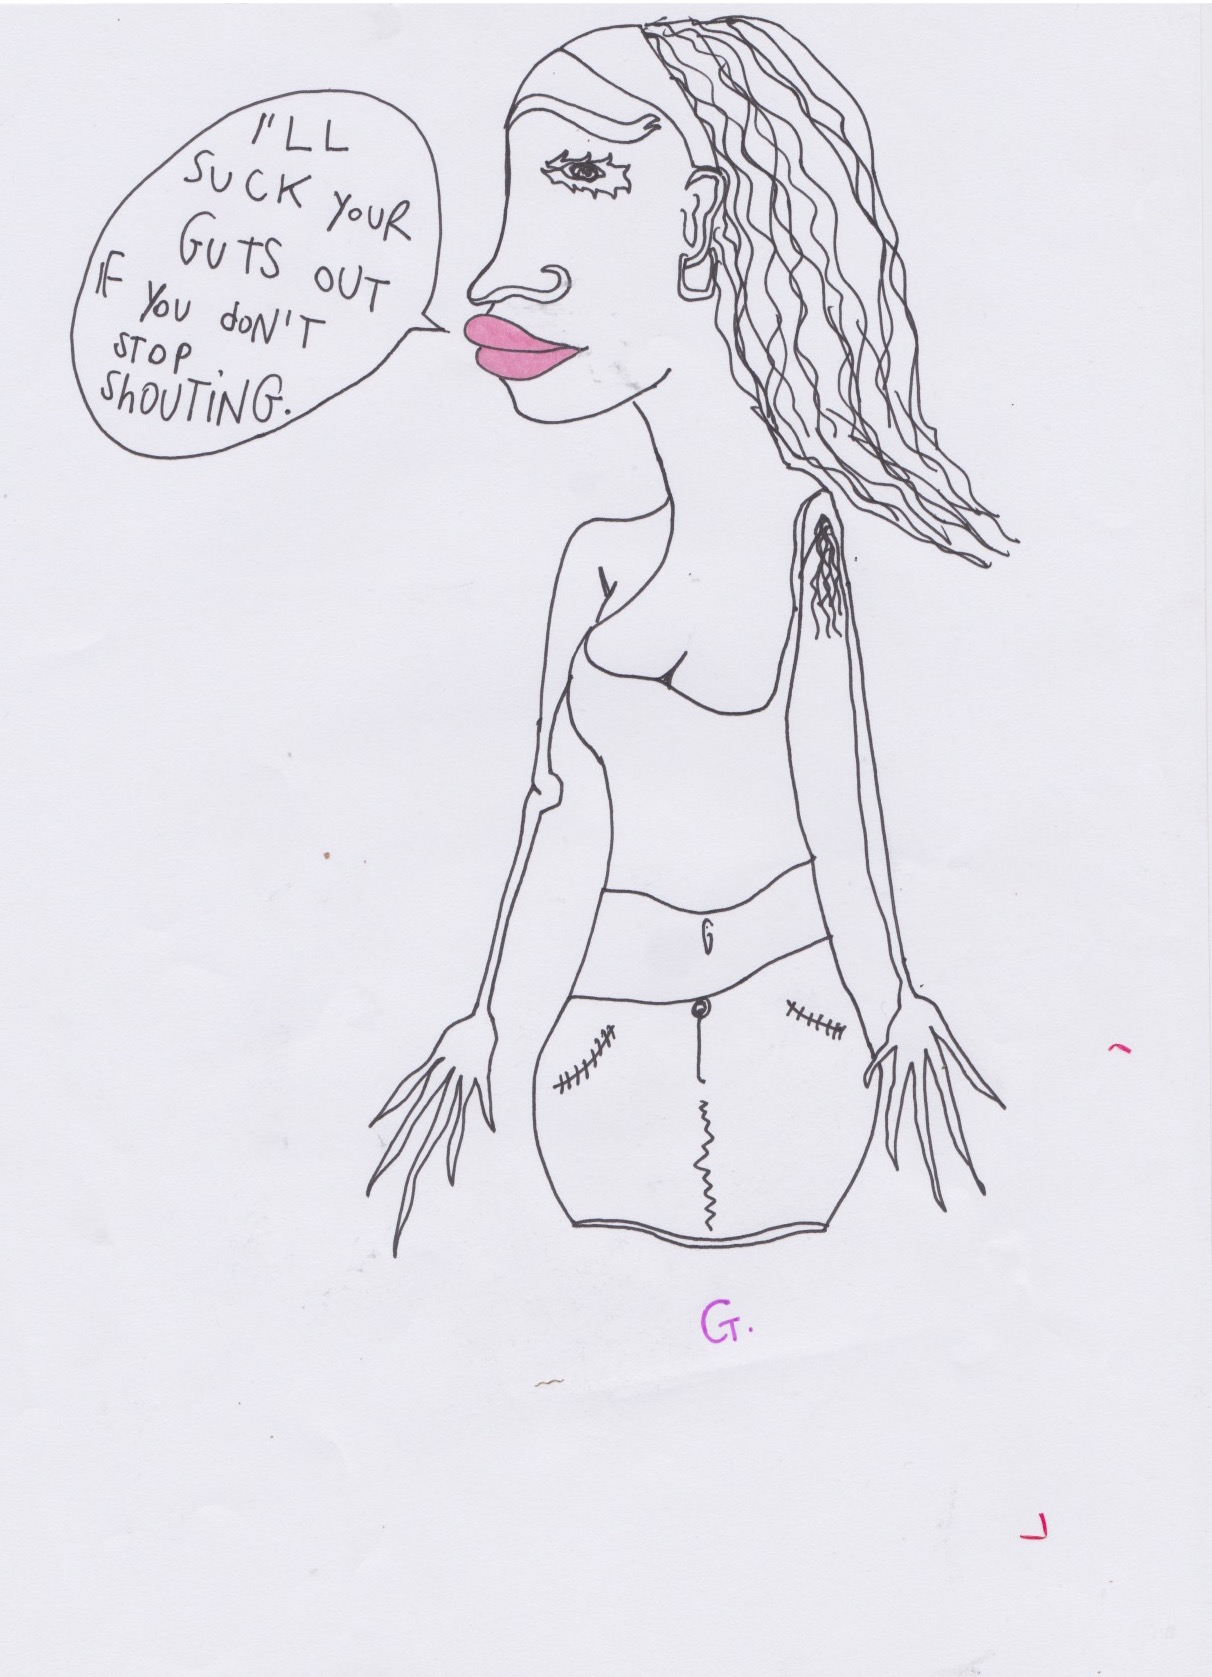 I'LL
SUCK YOUR
GUTS OUT
IF YOU doN'T
STOP
ShOUTiNG.
G.